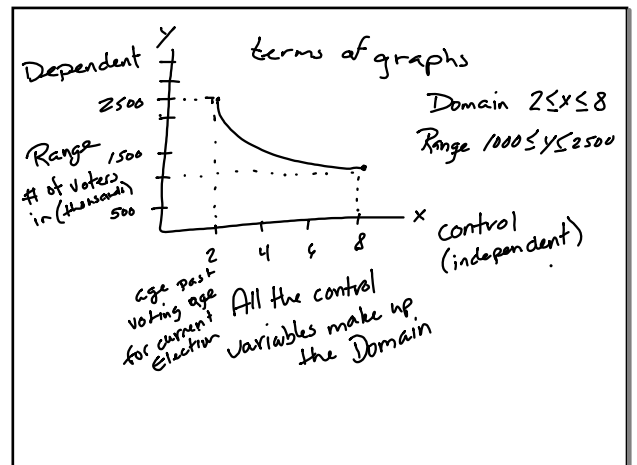 y
terms of graphs
Dependent
2500
Domain 2≤x≤8
Range 1000≤y≤2500
Range
1500
# of voters
in (thousands)
500
x
control
(independent)
2 4 6 8
age past
voting age
for current
Election
All the control
variables make up
the Domain